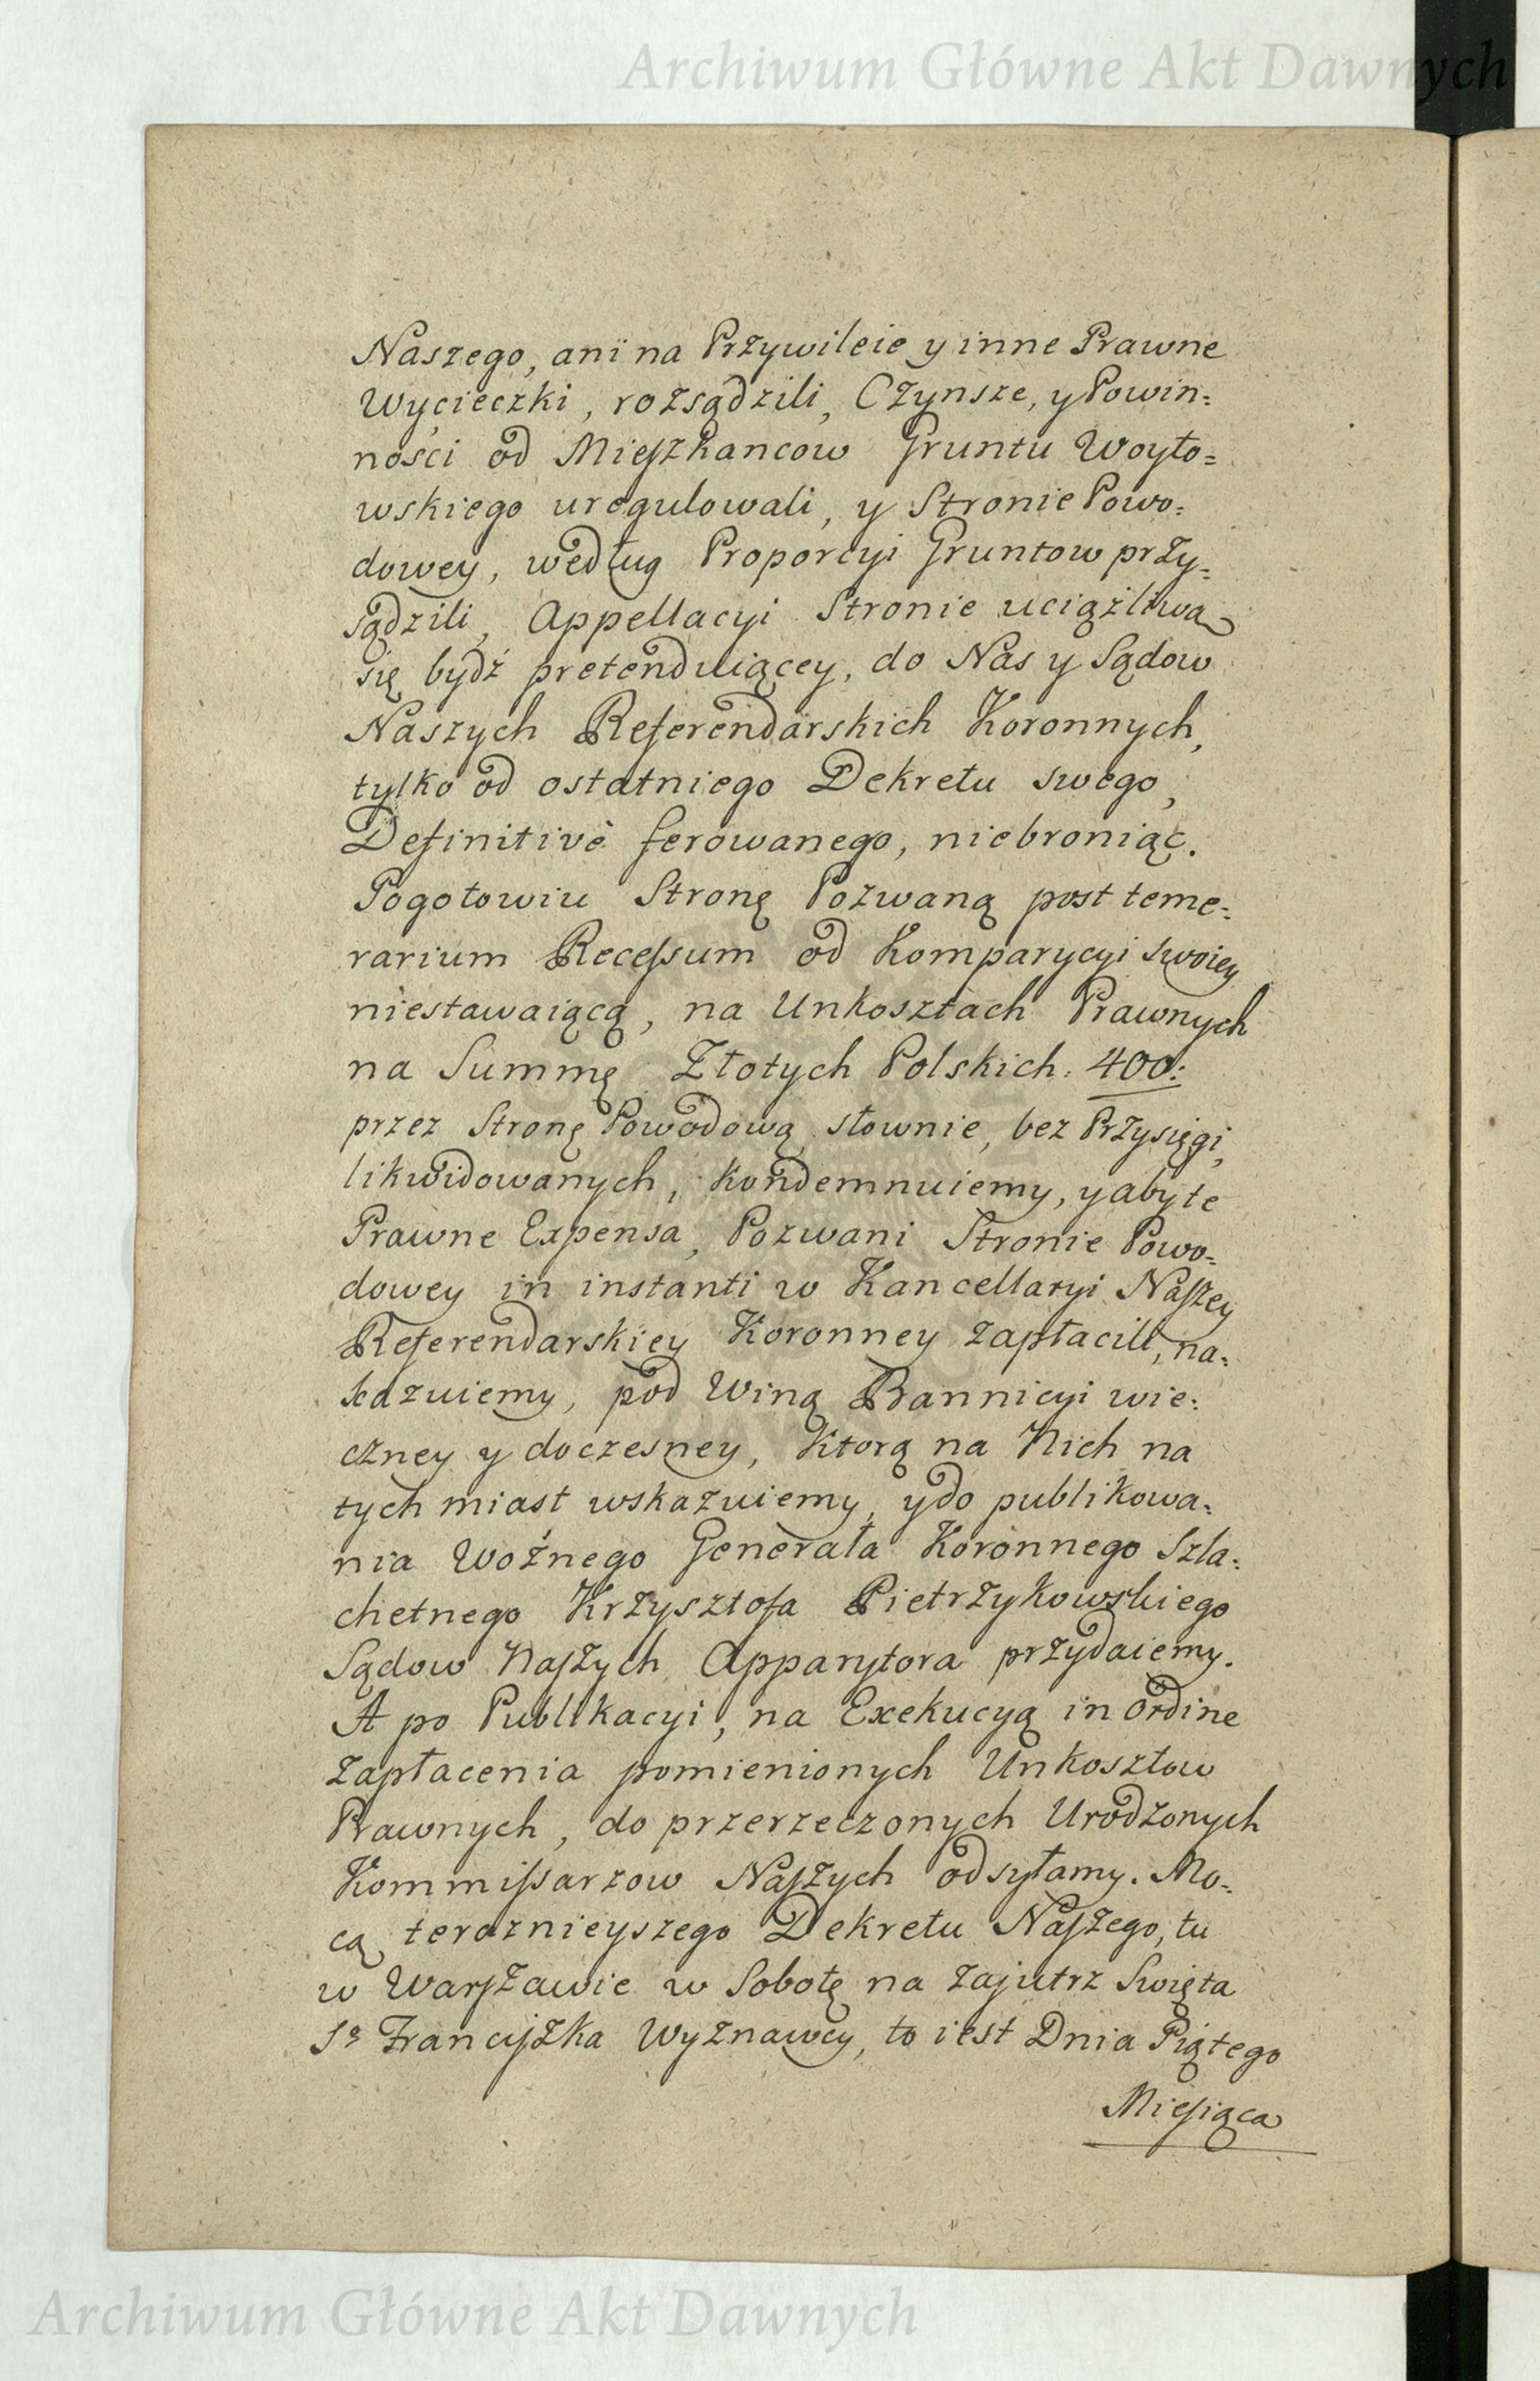 Archiwum Główne Akt Dawnych
Naszego, ani na Przywileie y inne Prawne
Wycieczki, rozsądzili, Czynsze, y Powin=
ności od Mieszkancow Gruntu Woyto=
wskiego uregulowali, y Stronie Powo=
dowey, według Proporcyi Gruntow przy=
sądzili, Appellacyi Stronie uciążliwą
się bydź pretenduiącey, do Nas y Sądow
Naszych Referendarskich Koronnych,
tylko od ostatniego Dekretu swego,
Definitivè ferowanego, niebroniąc.
Pogotowiu Stronę Pozwaną post teme=
rarium Recessum od Komparycyi swoiey
niestawaiącą, na Unkosztach Prawnych
na Summę Złotych Polskich. 400:
przez Stronę Powodową, słownie, bez Przysięgi,
likwidowanych, kondemnuiemy, y aby te
Prawne Expensa, Pozwani Stronie Powo=
dowey in instanti w Kancellaryi Naszey
Referendarskiey Koronney zapłacili, na=
kazuiemy, pod Winą Bannicyi wie=
czney y doczesney, ktorą na Nich na
tych miast wskazuiemy, y do publikowa=
nia Woźnego Generała Koronnego Szla=
chetnego Krzysztofa Pietrzykowskiego
Sądow Naszych Apparytora przydaiemy.
A po Publikacyi, na Exekucyą in ordine
zapłacenia pomienionych Unkosztow
Prawnych, do przerzeczonych Urodzonych
Kommissarzow Naszych odsyłamy. Mo=
cą teraznieyszego Dekretu Naszego, tu
w Warszawie w Sobotę na zajutrz Swięta
Sº Franciszka Wyznawcy, to iest Dnia Piątego
Miesiąca
Archiwum Główne Akt Dawnych